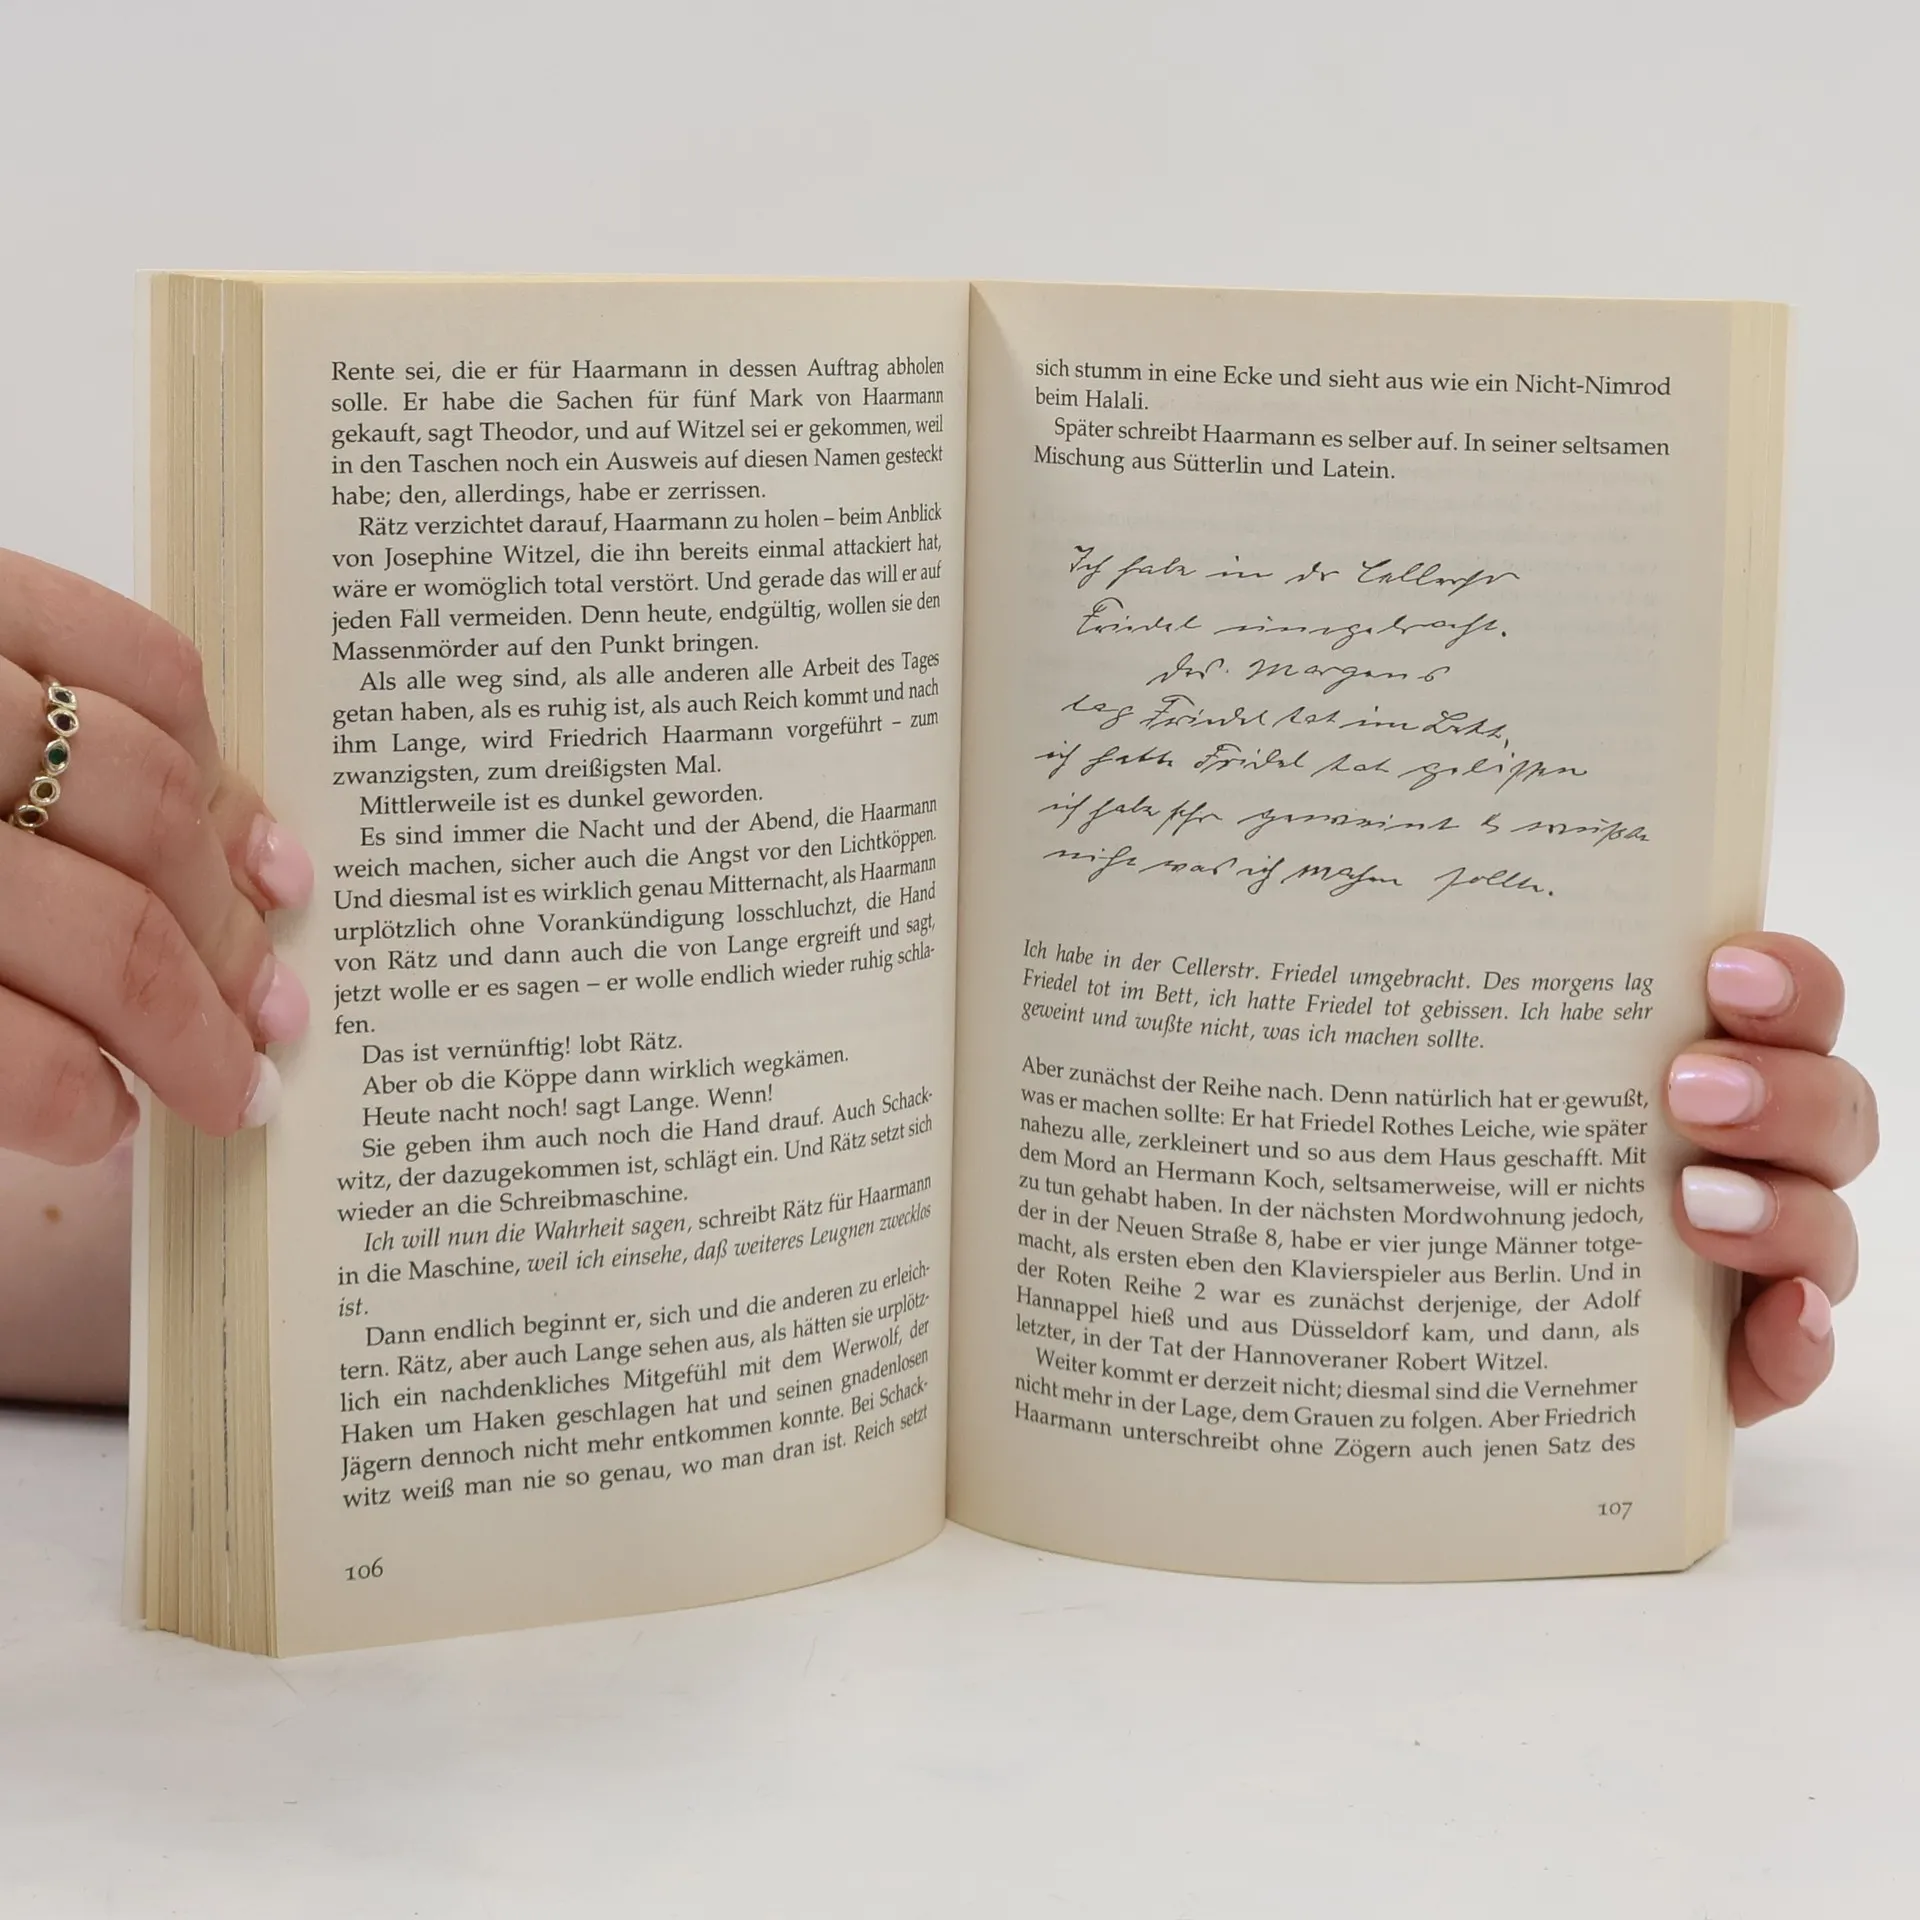 Rente sei, die er für Haarmann in dessen Auftrag abholen
solle. Er habe die Sachen für fünf Mark von Haarmann
gekauft, sagt Theodor, und auf Witzel sei er gekommen, weil
in den Taschen noch ein Ausweis auf diesen Namen gesteckt
habe; den, allerdings, habe er zerrissen.
Rätz verzichtet darauf, Haarmann zu holen – beim Anblick
von Josephine Witzel, die ihn bereits einmal attackiert hat,
wäre er womöglich total verstört. Und gerade das will er auf
jeden Fall vermeiden. Denn heute, endgültig, wollen sie den
Massenmörder auf den Punkt bringen.
Als alle weg sind, als alle anderen alle Arbeit des Tages
getan haben, als es ruhig ist, als auch Reich kommt und nach
ihm Lange, wird Friedrich Haarmann vorgeführt – zum
zwanzigsten, zum dreißigsten Mal.
Mittlerweile ist es dunkel geworden.
Es sind immer die Nacht und der Abend, die Haarmann
weich machen, sicher auch die Angst vor den Lichtköppen.
Und diesmal ist es wirklich genau Mitternacht, als Haarmann
urplötzlich ohne Vorankündigung losschluchzt, die Hand
von Rätz und dann auch die von Lange ergreift und sagt,
jetzt wolle er es sagen – er wolle endlich wieder ruhig schla-
fen.
Das ist vernünftig! lobt Rätz.
Aber ob die Köppe dann wirklich wegkämen.
Heute nacht noch! sagt Lange. Wenn!
Sie geben ihm auch noch die Hand drauf. Auch Schack-
witz, der dazugekommen ist, schlägt ein. Und Rätz setzt sich
wieder an die Schreibmaschine.
Ich will nun die Wahrheit sagen, schreibt Rätz für Haarmann
in die Maschine, weil ich einsehe, daß weiteres Leugnen zwecklos
ist.
Dann endlich beginnt er, sich und die anderen zu erleich-
tern. Rätz, aber auch Lange sehen aus, als hätten sie urplötz-
lich ein nachdenkliches Mitgefühl mit dem Werwolf, der
Haken um Haken geschlagen hat und seinen gnadenlosen
Jägern dennoch nicht mehr entkommen konnte. Bei Schack-
witz weiß man nie so genau, wo man dran ist. Reich setzt
106
sich stumm in eine Ecke und sieht aus wie ein Nicht-Nimrod
beim Halali.
Später schreibt Haarmann es selber auf. In seiner seltsamen
Mischung aus Sütterlin und Latein.
Ich habe in dr Cellerstr
Friedel umgebracht.
des. Morgens
lag Friedel tot im Bett,
ich hatte Fridel tot gebissen
ich habe sehr geweint & wußte
nicht was ich machen sollte.
Ich habe in der Cellerstr. Friedel umgebracht. Des morgens lag
Friedel tot im Bett, ich hatte Friedel tot gebissen. Ich habe sehr
geweint und wußte nicht, was ich machen sollte.
Aber zunächst der Reihe nach. Denn natürlich hat er gewußt,
was er machen sollte: Er hat Friedel Rothes Leiche, wie später
nahezu alle, zerkleinert und so aus dem Haus geschafft. Mit
dem Mord an Hermann Koch, seltsamerweise, will er nichts
zu tun gehabt haben. In der nächsten Mordwohnung jedoch,
der in der Neuen Straße 8, habe er vier junge Männer totge-
macht, als ersten eben den Klavierspieler aus Berlin. Und in
der Roten Reihe 2 war es zunächst derjenige, der Adolf
Hannappel hieß und aus Düsseldorf kam, und dann, als
letzter, in der Tat der Hannoveraner Robert Witzel.
Weiter kommt er derzeit nicht; diesmal sind die Vernehmer
nicht mehr in der Lage, dem Grauen zu folgen. Aber Friedrich
Haarmann unterschreibt ohne Zögern auch jenen Satz des
107